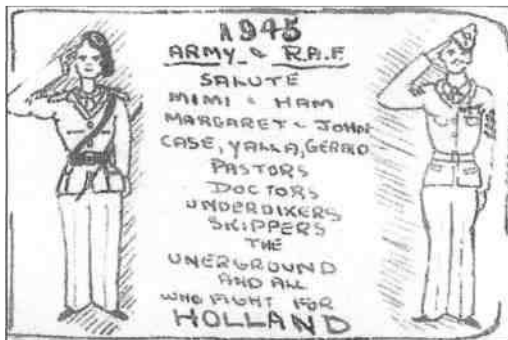 1945
ARMY & R.A.F
SALUTE
MIMI & HAM
MARGARET & JOHN
CASE, YALLA, GERALD
PASTORS
DOCTORS
UNDERDIKERS
SKIPPERS
THE
UNERGROUND
AND ALL
WHO FIGHT FOR
HOLLAND